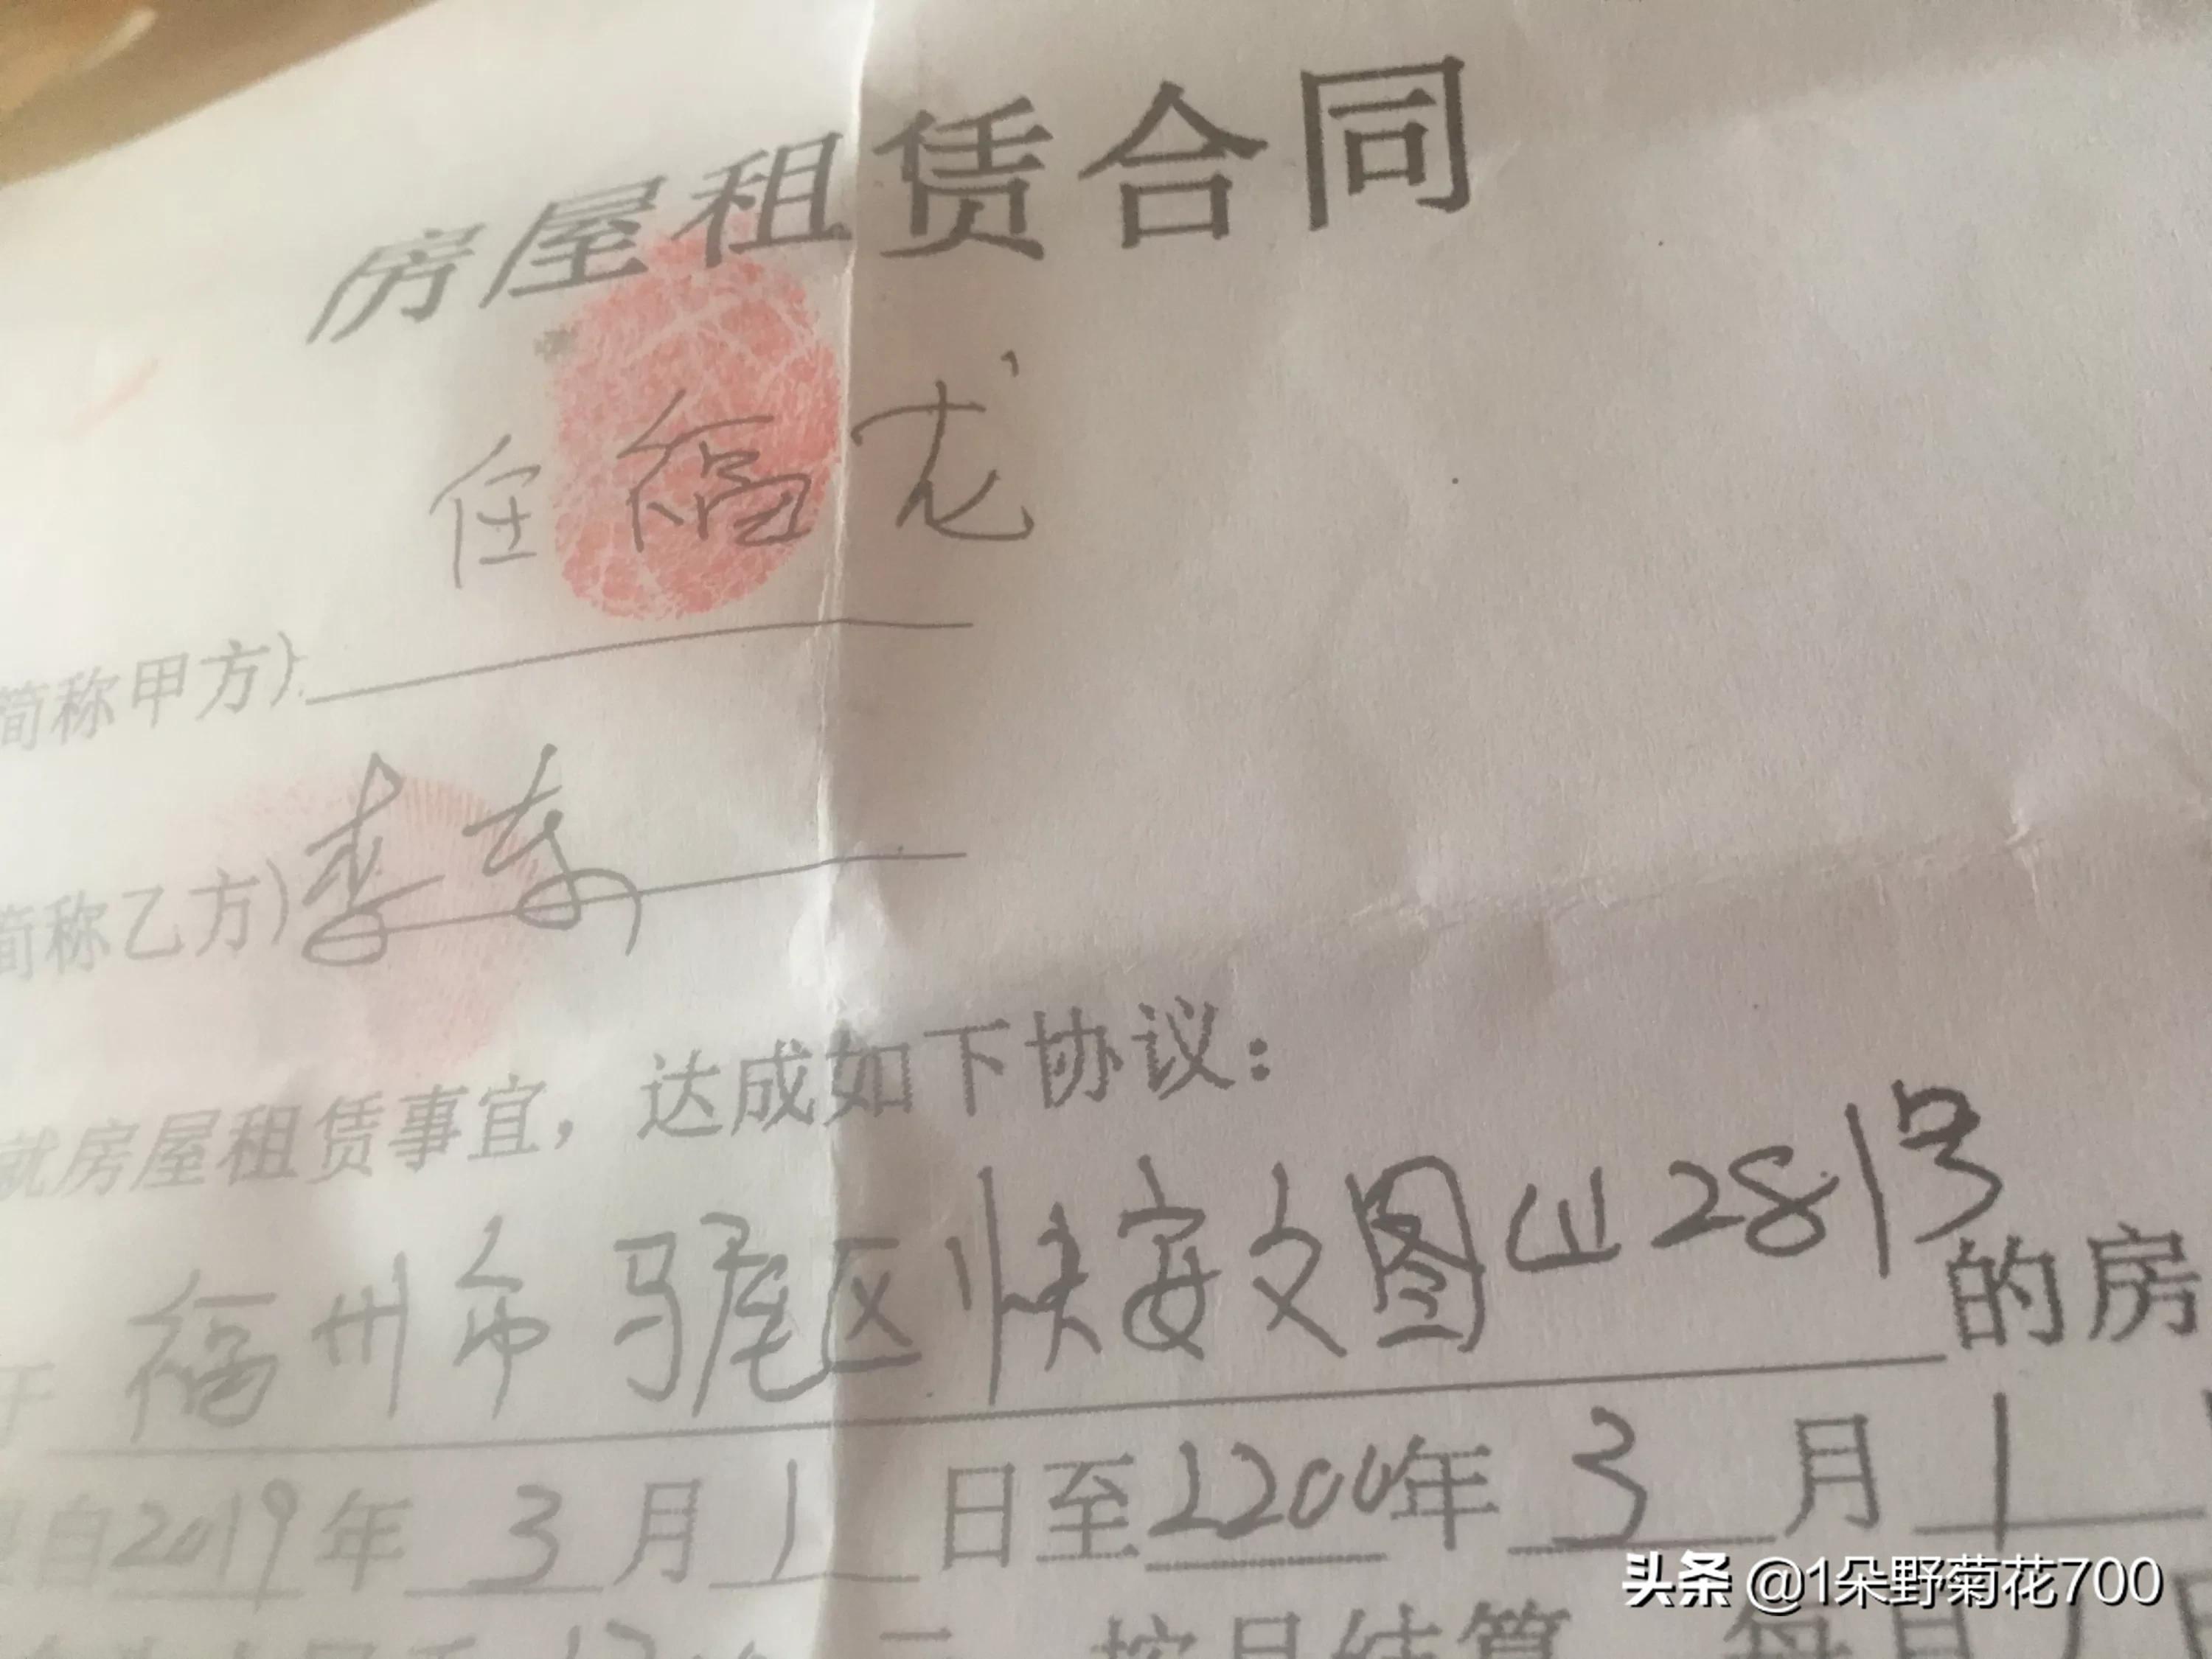 房屋租赁合同
任福龙
简称甲方)
简称乙方)李
就房屋租赁事宜，达成如下协议：
于福州市马尾区快安文图山281号的房
自2019年3月1日至2200年3月1
按月结算 每月
头条 @1朵野菊花700